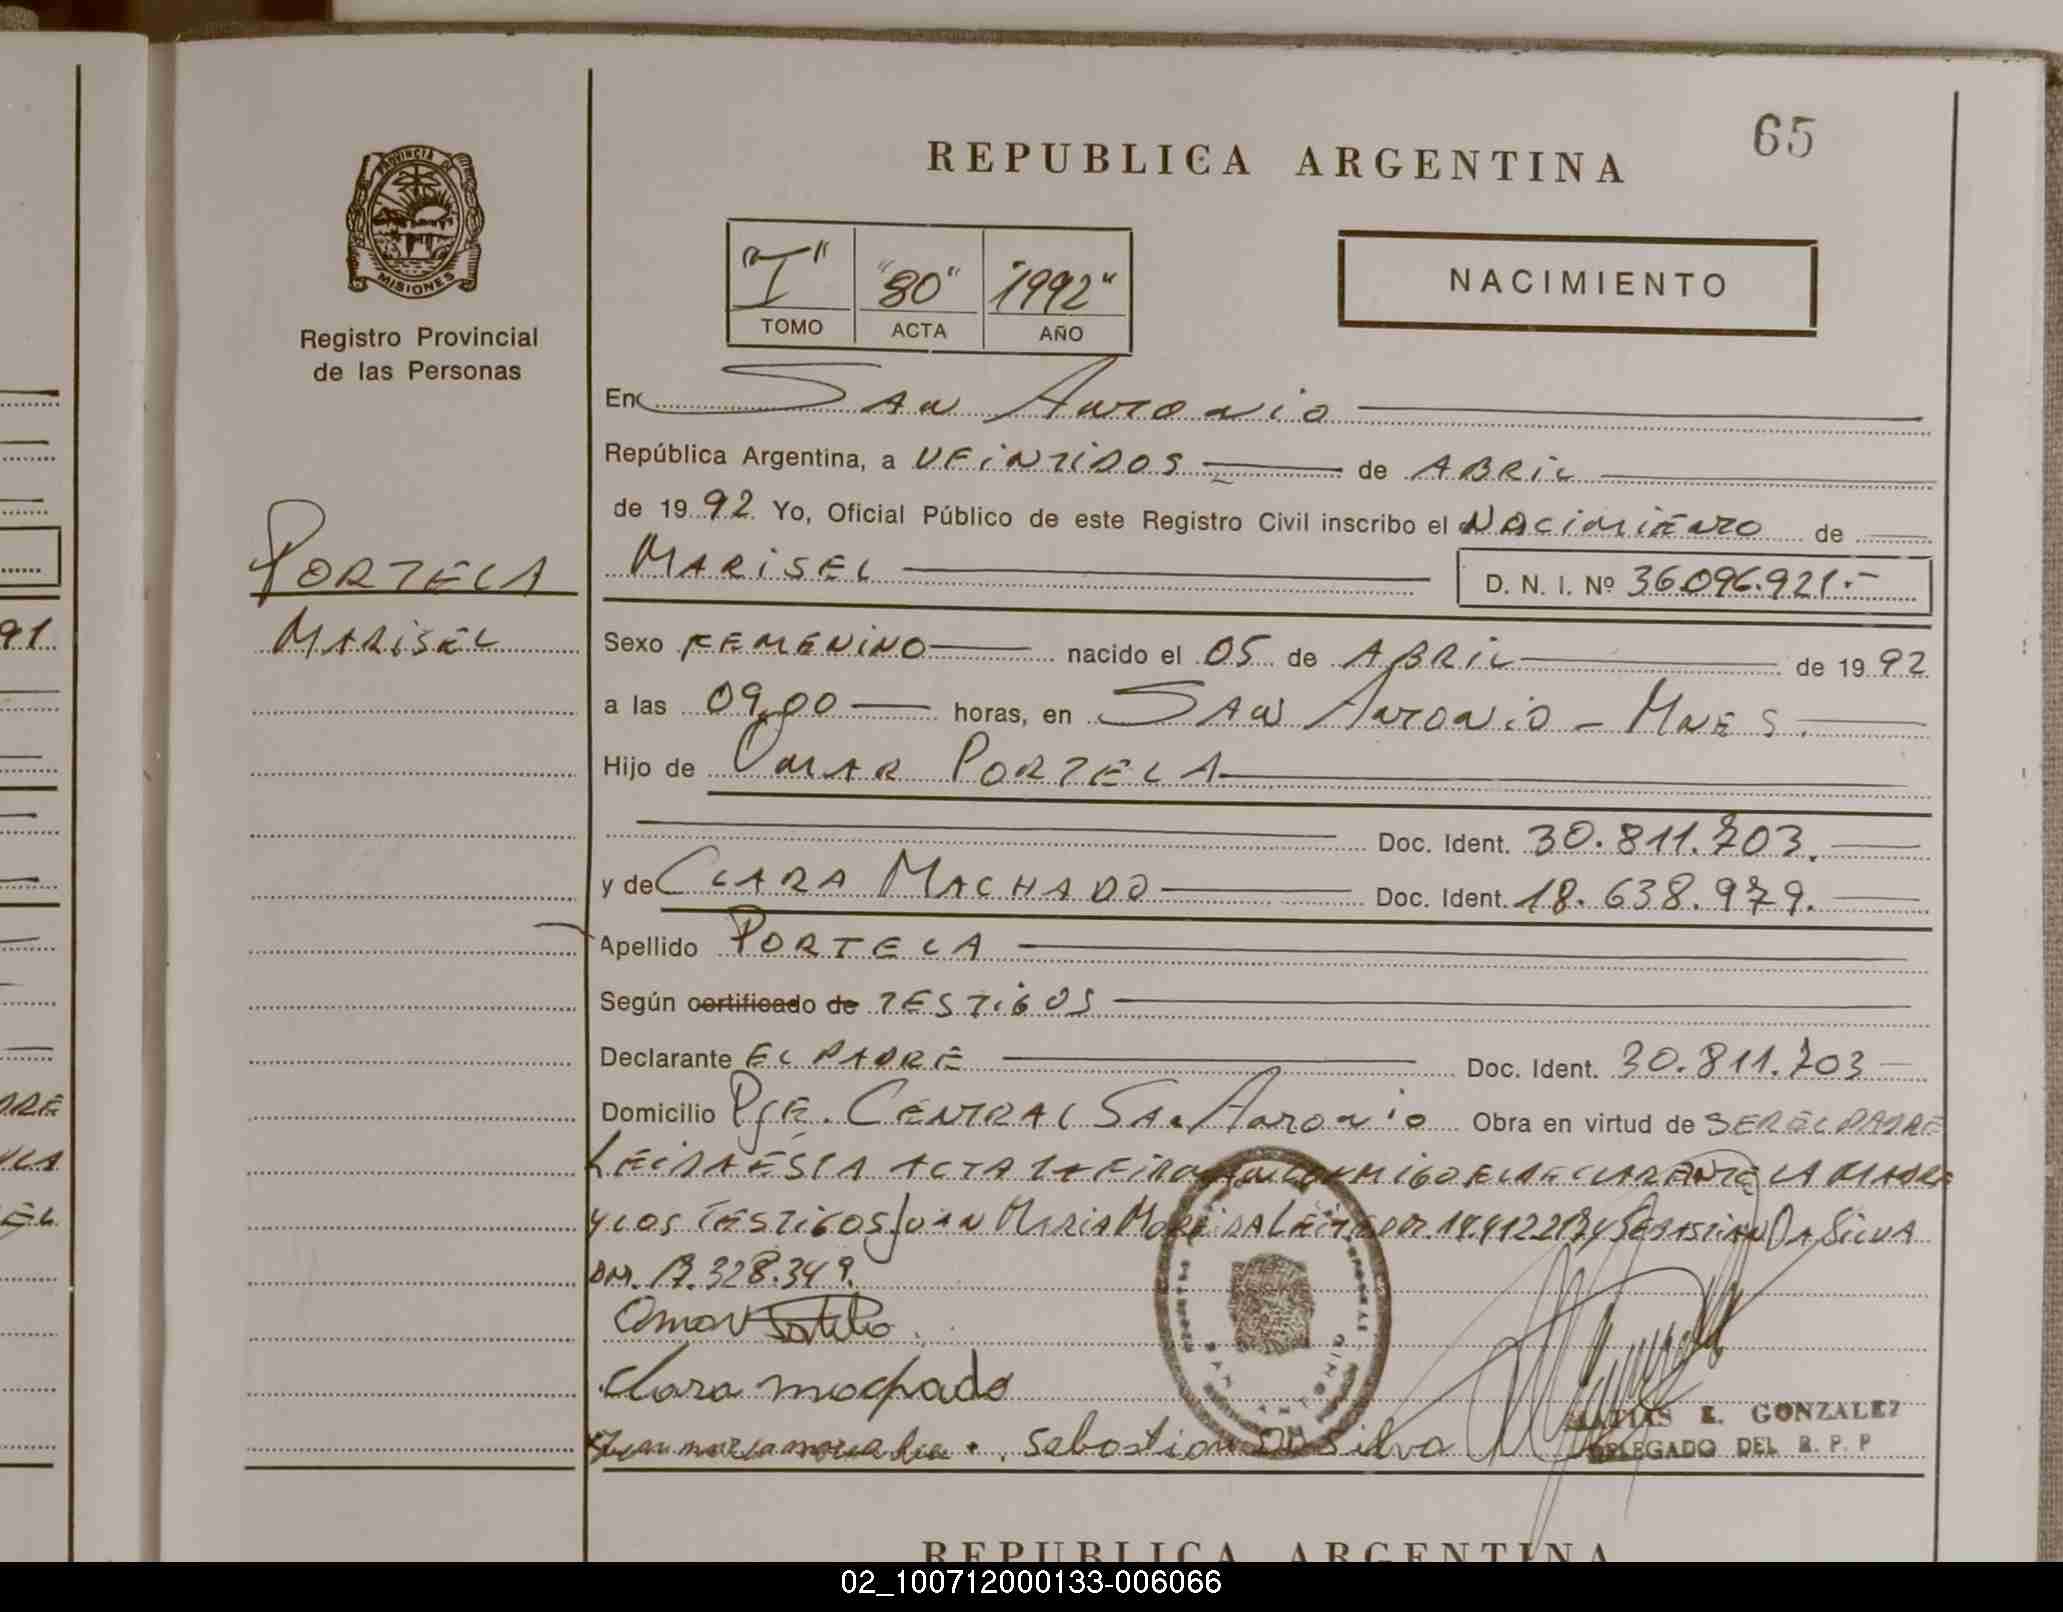 65
REPUBLICA ARGENTINA
PROVINCIA DE
MISIONES
Registro Provincial
de las Personas
"I" "80" "1992"
TOMO ACTA AÑO
NACIMIENTO
En San Antonio
República Argentina, a VEINTIDOS de ABRIL
de 19 92 Yo, Oficial Público de este Registro Civil inscribo el Nacimiento de
MARISEL D. N. I. Nº 36.096.921.-
PORTELA
MARISEL
Sexo FEMENINO nacido el 05 de ABRIL de 19 92
a las 09,00 horas, en SAN ANTONIO - MNES.
Hijo de OMAR PORTELA
Doc. Ident. 30.811.703.
y de CLARA MACHADO Doc. Ident. 18.638.979.
Apellido PORTELA
Según certificado de TESTIGOS
Declarante EL PADRE Doc. Ident. 30.811.703
Domicilio Pje. CENTRAL San Antonio Obra en virtud de SER EL PADRE
LEIDA ESTA ACTA LA FIRMAN CONMIGO EL DECLARANTE LA MADRE
Y LOS TESTIGOS JUAN MARIA MOREIRA Y SEBASTIAN DA SILVA
328.349.
Omar Portela
Clara machado
Sebastian Da Silva
MATIAS E. GONZALEZ
DELEGADO DEL R. P. P
SAN ANTONIO
REPUBLICA ARGENTINA
91
02_100712000133-006066